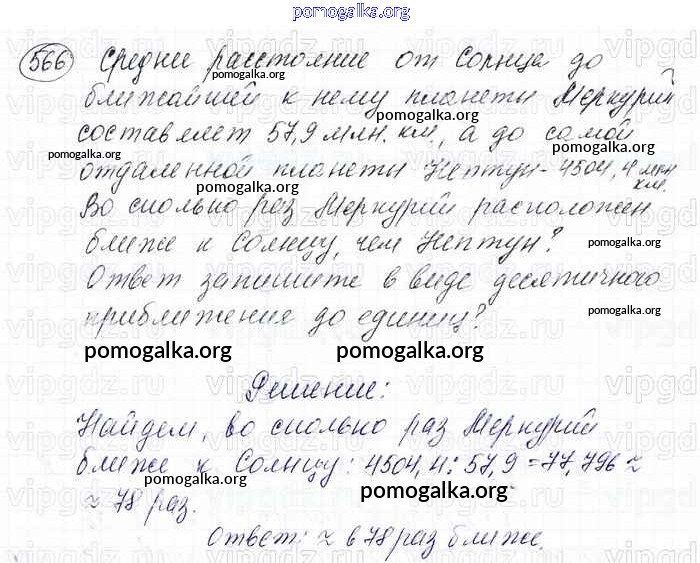 pomogalka.org
566 Среднее расстояние от Солнца до
pomogalka.org
ближайшей к нему планеты Меркурий
pomogalka.org
составляет 57,9 млн. км, а до самой
pomogalka.org
отдаленной планеты Нептун - 4504,4 млн
км.
pomogalka.org
Во сколько раз Меркурий расположен
ближе к Солнцу, чем Нептун?
pomogalka.org
Ответ запишите в виде десятичного
pomogalka.org
приближение до единиц?
pomogalka.org pomogalka.org
Решение:
Найдем, во сколько раз Меркурий
ближе к Солнцу: 4504,4 : 57,9 = 77,796 ≈
pomogalka.org
≈ 78 раз.
pomogalka.org
Ответ: ≈ в 78 раз ближе.